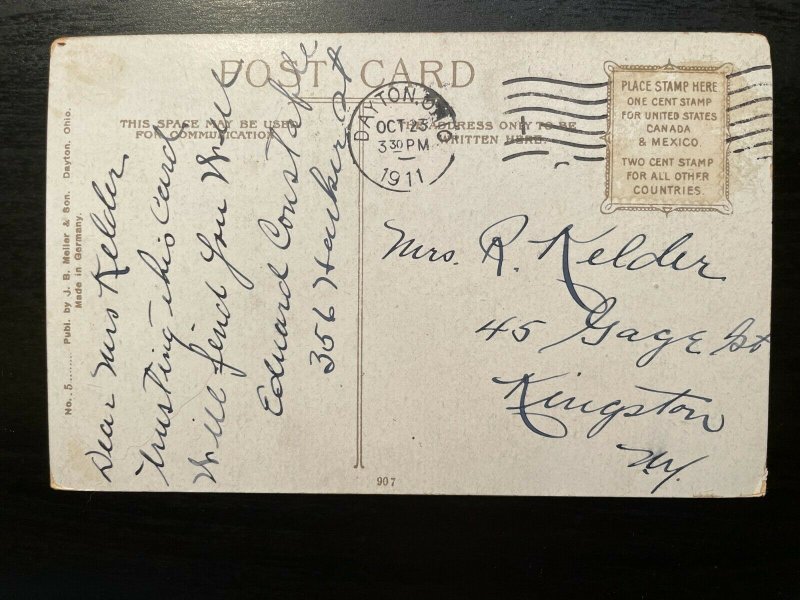 POST CARD
THIS SPACE MAY BE USED
FOR COMMUNICATION
THE ADDRESS ONLY TO BE
WRITTEN HERE.
DAYTON, OHIO
OCT 23
3 30 PM
1911
PLACE STAMP HERE
ONE CENT STAMP
FOR UNITED STATES
CANADA
& MEXICO
TWO CENT STAMP
FOR ALL OTHER
COUNTRIES.
No. 5 Publ. by J. B. Meller & Son. Dayton, Ohio.
Made in Germany.
Dear Mrs Kelder
trusting this card
Will find you Well
Edward Constable
356 Harker st
Mrs. R. Kelder
45 Gage St
Kingston
NY
907